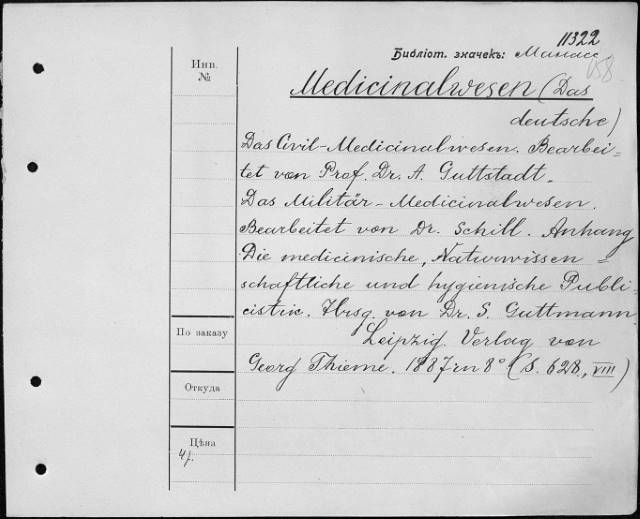 11322
Библіот. значекъ: Манасс
158
Инв.
№
Medicinalwesen (Das
deutsche)
Das Civil-Medicinalwesen. Bearbei=
tet von Prof. Dr. A. Guttstadt.
Das Militär-Medicinalwesen.
Bearbeitet von Dr. Schill. Anhang
Die medicinische, Naturwissen=
schaftliche und hygienische Publi-
cistic. Hrsg. von Dr. S. Guttmann
Leipzig. Verlag von
Georg Thieme. 1887 in 8° (S. 628, VIII)
По заказу
Откуда
Цѣна